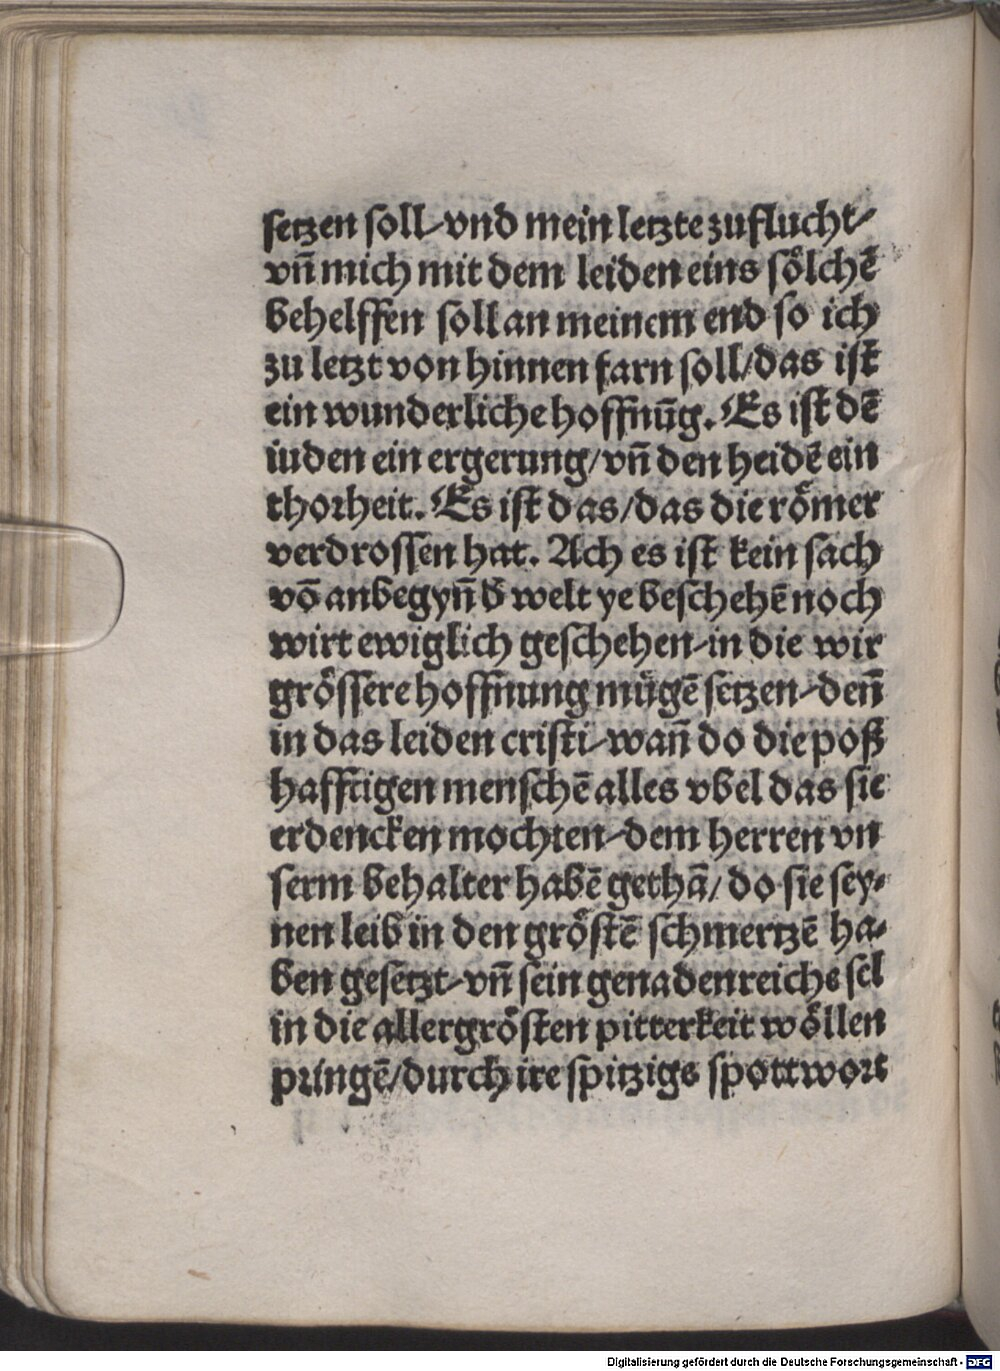 setzen soll/ vnd mein letzte zuflucht/
vn̄ mich mit dem leiden eins soͤlchē
behelffen soll an meinem end so ich
zu letzt von hinnen farn soll/das ist
ein wunderliche hoffnūg. Es ist dē
iuden ein ergerung/vn̄ den heidē ein
thorheit. Es ist das/das die roͤmer
verdrossen hat. Ach es ist kein sach
vō anbegyn̄ d̓ welt ye beschehē noch
wirt ewiglich geschehen/in die wir
groͤssere hoffnung muͤgē setzen/den̄
in das leiden cristi/wan̄ do die poß
hafftigen menschē alles vbel das sie
erdencken mochten/dem herren vn
serm behalter habē gethā/ do sie sey⸗
nen leib in den groͤstē schmertzē ha⸗
ben gesetzt/vn̄ sein genadenreichs sel
in die allergroͤsten pitterkeit woͤllen
pringē/durch ire spitzigs spottwort
Digitalisierung gefördert durch die Deutsche Forschungsgemeinschaft - DFG